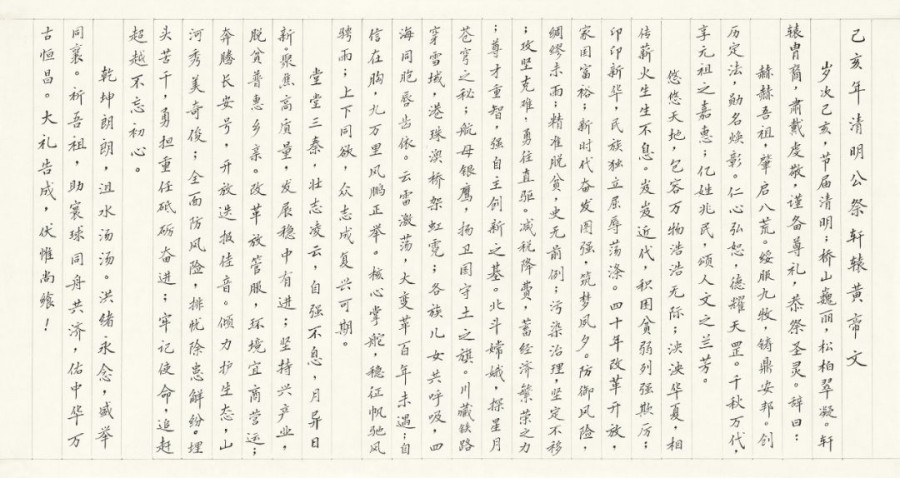 己亥年清明公祭轩辕黄帝文
岁次己亥，节届清明；桥山巍丽，松柏翠凝。轩
辕胄裔，肃戴虔敬，谨备尊礼，恭祭圣灵。辞曰：
赫赫吾祖，肇启八荒。绥服九牧，铸鼎安邦。创
历定法，勋名焕彰。仁心弘恕，德耀天罡。千秋万代，
享元祖之嘉惠；亿姓兆民，颂人文之兰芳。
悠悠天地，包容万物浩浩无际；泱泱华夏，相
传薪火生生不息。岌岌近代，积困贫弱列强欺厉；
印印新华，民族独立屈辱荡涤。四十年改革开放，
家国富裕；新时代奋发图强，筑梦夙夕。防御风险，
绸缪未雨；精准脱贫，史无前例；污染治理，坚定不移
；攻坚克难，勇往直驱。减税降费，蓄经济繁荣之力
；尊才重智，强自主创新之基。北斗嫦娥，探星月
苍穹之秘；航母银鹰，扬卫国守土之旗。川藏铁路
穿雪域，港珠澳桥架虹霓；各族儿女共呼吸，四
海同胞唇齿依。云雷激荡，大变革百年未遇；自
信在胸，九万里风鹏正举。核心掌舵，稳征帆驰风
骋雨；上下同欲，众志成复兴可期。
堂堂三秦，壮志凌云，自强不息，月异日
新。聚焦高质量，发展稳中有进；坚持兴产业，
脱贫普惠乡亲。改革放管服，环境宜商营运；
奔腾长安号，开放迭报佳音。倾力护生态，山
河秀美奇俊；全面防风险，排忧除患解纷。埋
头苦干，勇担重任砥砺奋进；牢记使命，追赶
超越不忘初心。
乾坤朗朗，沮水汤汤。洪绪永念，咸举
同襄。祈吾祖，助寰球同舟共济，佑中华万
古恒昌。大礼告成，伏惟尚飨！